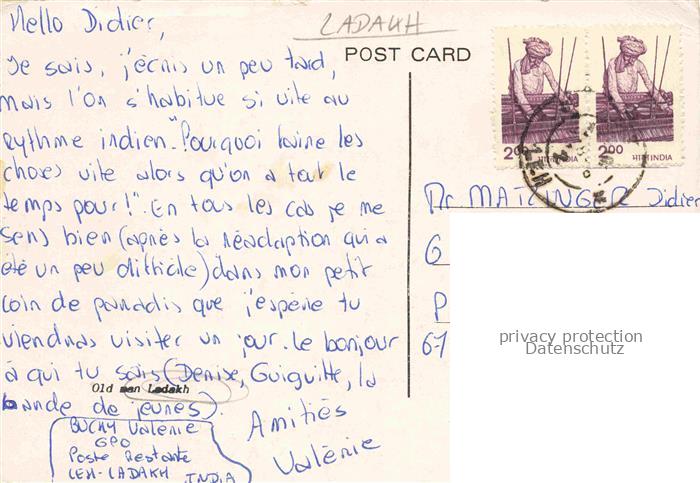 Hello Didier,
Je sais, j'écris un peu tard,
mais l'on s'habitue si vite au
rythme indien. "Pourquoi faire les
choses vite alors qu'on a tout le
temps pour!". En tous les cas je me
sens bien (après la réadaption qui a
été un peu difficile) dans mon petit
coin de paradis que j'espère tu
viendras visiter un jour. Le bonjour
à qui tu sais (Denise, Guiguitte, la
bande de jeunes).
Amitiés
Valérie
Old man Ladakh
BUCHY Valérie
GPO
Poste Restante
LEH-LADAKH
INDIA
LADAKH
POST CARD
2.00 भारत INDIA
2.00 भारत INDIA
Mr MATZINGER Didier
G
P
67
privacy protection
Datenschutz